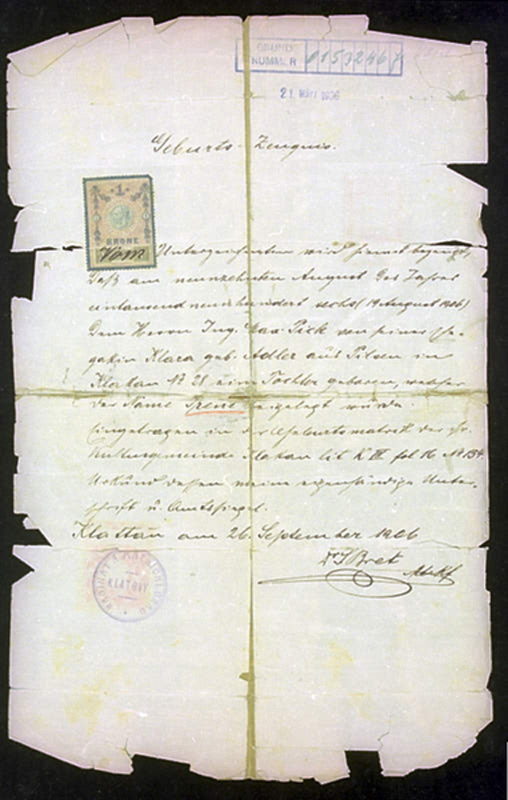 GRUND
NUMMER 01532467
21. März 1936
Geburts-Zeugnis.
1
KRONE
Vom Unterzeichneten wird hiemit bezeugt,
daß am neunzehnten August des Jahres
eintausend neunhundert sechs (19 August 1906)
dem Herrn Ing. Max Pick von seiner
gattin Klara geb. Adler aus Pilsen in
Klattau No 28 eine Tochter geboren, welcher
der Name Irene beigelegt wurde.
Eingetragen in der Geburtsmatrik der isr.
Kultusgemeinde Klattau lit fol 16 No 134
Urkund dessen meine eigenhändige Unter-
schrift u. Amtssiegel.
Klattau am 26. September 1906
Dr J Bret
KLATOVY